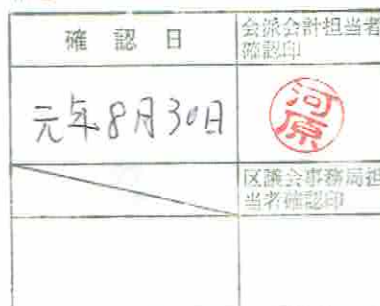 確認日
会派会計担当者
確認印
元年8月30日
河
原
区議会事務局担
当者確認印